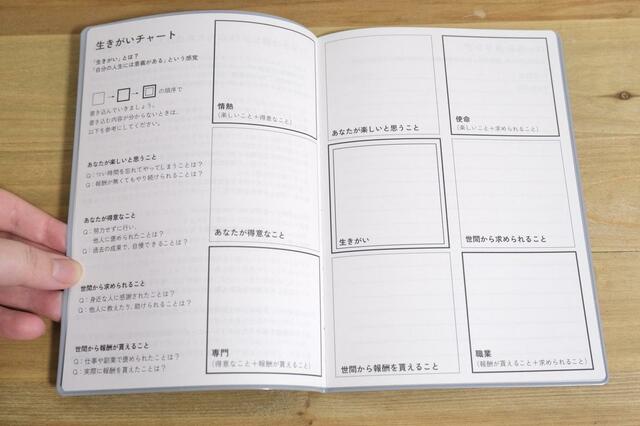 生きがいチャート
「生きがい」とは?
「自分の人生には意義がある」という感覚
□→□→□の順序で
書き込んでいきましょう。
書き込む内容が分からないときは、
以下も参考にしてください。
あなたが楽しいと思うこと
Q:つい時間を忘れてやってしまうことは?
Q:報酬が無くてもやり続けられることは?
あなたが得意なこと
Q:努力せずに行い、
他人に褒められたことは?
Q:過去の成果で、自慢できることは?
世間から求められること
Q:身近な人に感謝されたことは?
Q:他人に教えたり、助けられることは?
世間から報酬が貰えること
Q:仕事や副業で褒められたことは?
Q:実際に報酬を貰えたことは?
情熱
(楽しいこと+得意なこと)
あなたが得意なこと
専門
(得意なこと+報酬が貰えること)
あなたが楽しいと思うこと
生きがい
世間から報酬を貰えること
使命
(楽しいこと+求められること)
世間から求められること
職業
(報酬が貰えること+求められること)